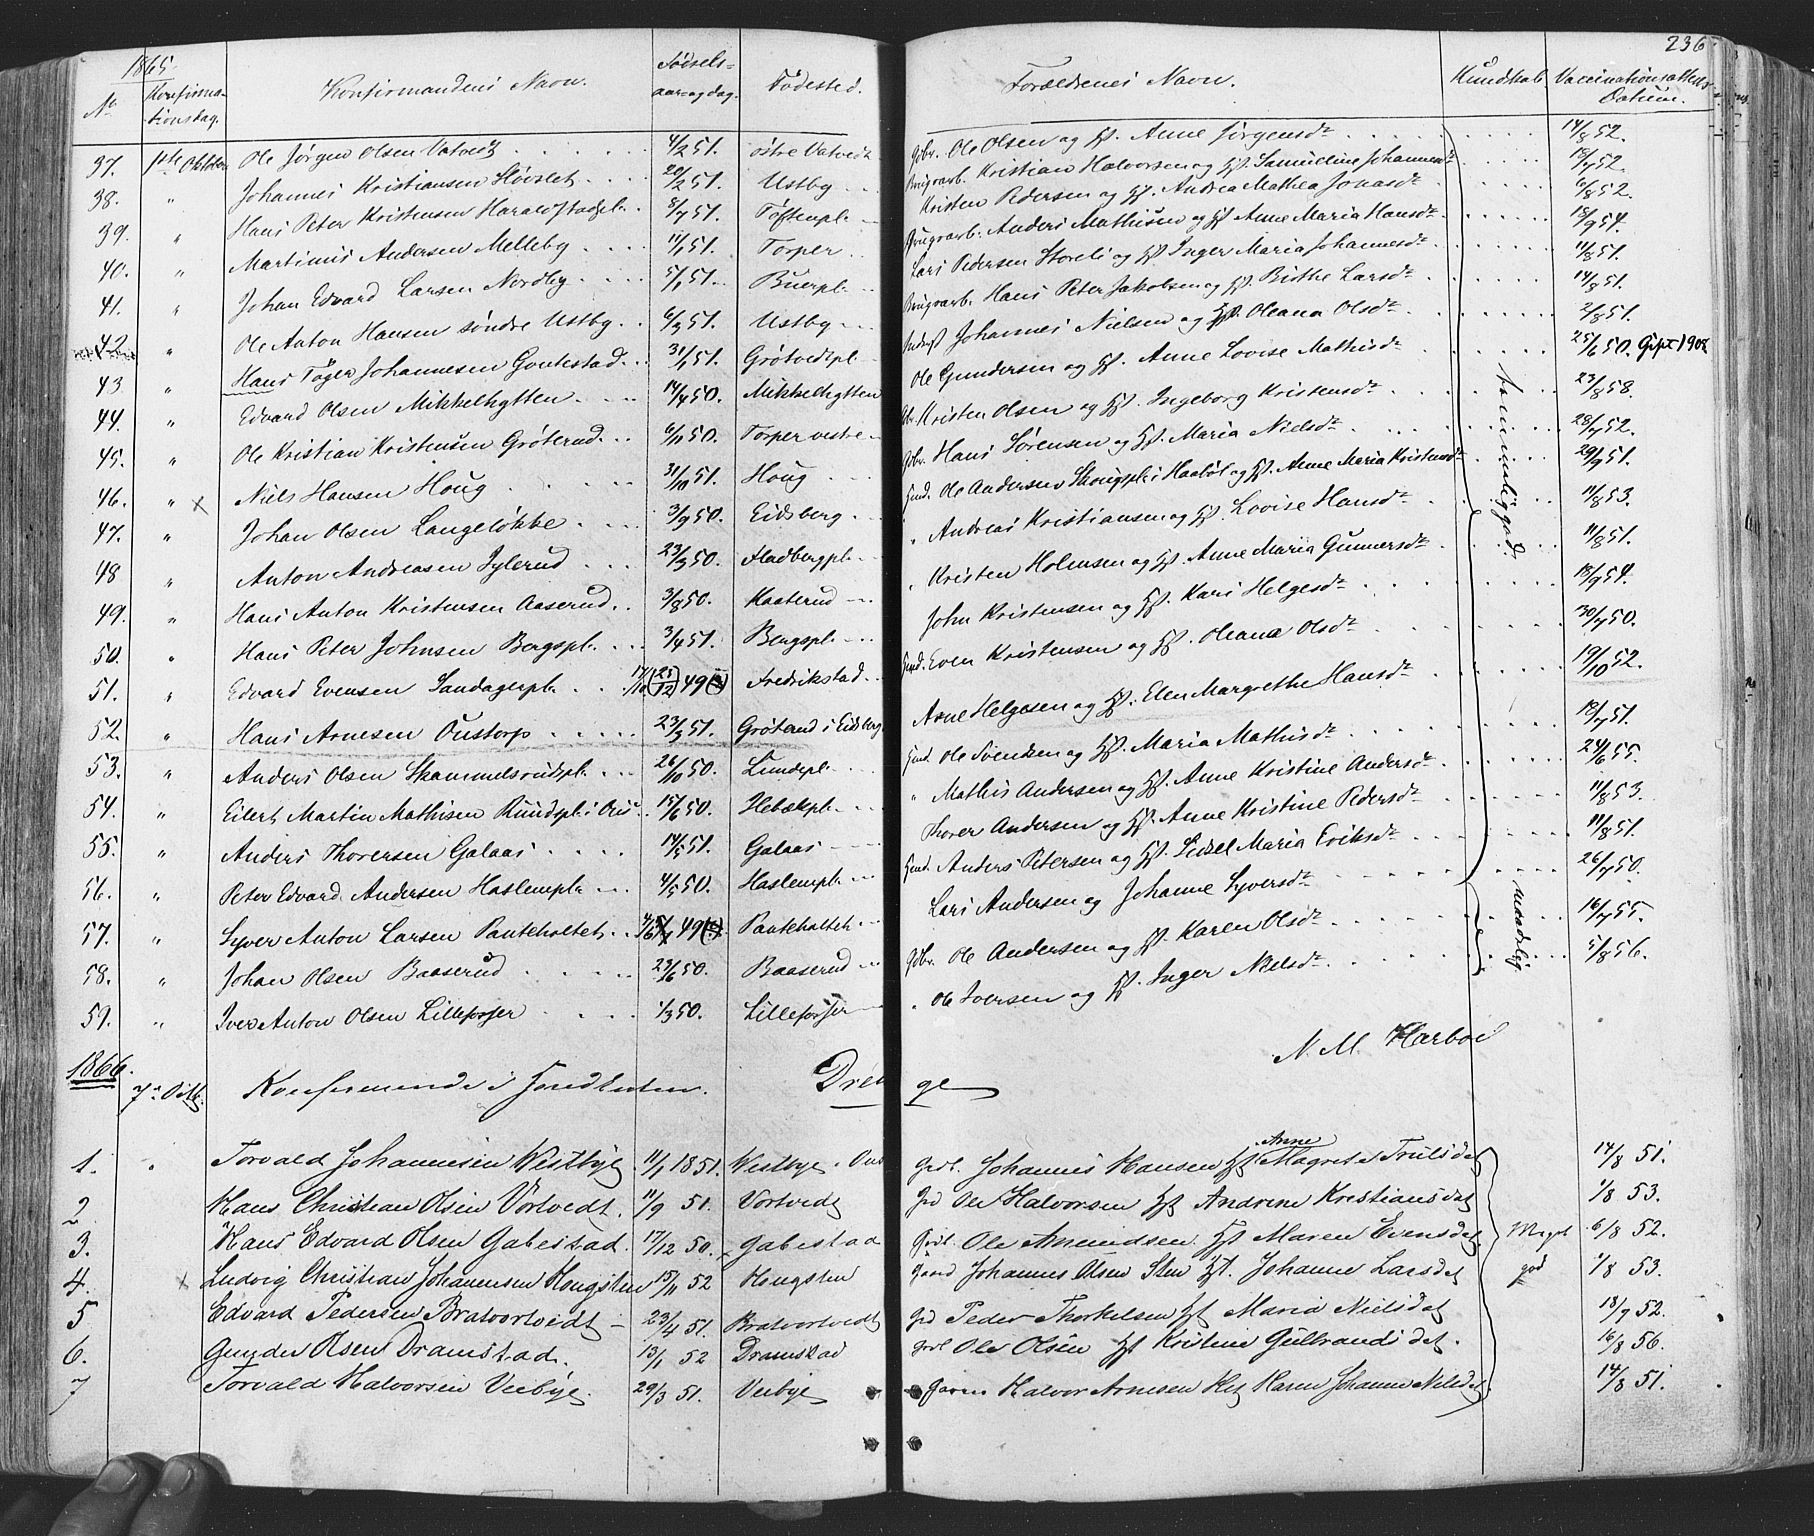 236
1865.
No
Konfirmationsdag.
Konfirmandens Navn.
Fødselsaar og dag.
Fødested.
Forældrenes Navn.
Kundskab
Vaccinationsattestens Datum.
37. 1ste Oktober Ole Jørgen Olsen Vatvedt 4/2 51. østre Vatvedt Gbr. Ole Olsen og Hst. Anne Jørgensdr 14/8 52.
38. " Johannes Kristiansen Støvslet 20/2 51. Ustby Brugsarb. Kristian Halvorsen og Hst. Samueline Johannesdr 18/7 52.
39. " Hans Peter Kristensen Haraldstadpl. 8/7 51. Toftenpl. Kristen Pedersen og Hst. Andrea Mathea Jonasdr 6/8 52.
40. " Martinus Andersen Melleby 11/1 51. Torper Brugsarb. Anders Mathisen og Hst. Anne Maria Hansdr 18/9 54.
41. " Johan Edvard Larsen Nordby 5/1 51. Buerpl. Lars Pedersen Storeli og Hst. Inger Maria Johannesdr 11/8 51.
42. " Ole Anton Hansen søndre Ustby 6/3 51. Ustby Brugsarb. Hans Peter Jakobsen og Hst. Birthe Larsdr 14/8 51.
43. " Hans Tøger Johannesen Gontestad 31/1 51. Grøtvedtpl. Inderst Johannes Nielsen og Hst. Oleana Olsdr 2/8 51.
44. " Edvard Olsen Mikkelhytten 14/4 50. Mikkelhytten Ole Gundersen og Hst. Anne Lovise Mathisdr 25/6 50. Gift 1902
45. " Ole Kristian Kristensen Grøterud 6/11 50. Torper vestre Gbr. Kristen Olsen og Hst. Ingeborg Kristensdr 23/8 58.
46. " x Niels Hansen Houg 31/10 51. Houg Gbr. Hans Sørensen og Hst. Maria Nielsdr 28/7 52.
47. " Johan Olsen Langeløkke 3/9 50. Eidsberg Hmd. Ole Andersen Skougspl. i Haabøl og Hst. Anne Maria Kristensdr 29/9 51.
48 " Anton Andreasen Sylerud 23/3 50. Fladbergpl. " Andreas Kristiansen og Hst. Lovise Hansdr 11/8 53.
49. " Hans Anton Kristensen Aaserud 3/8 50. Kaaterud " Kristen Holmsen og Hst. Anne Maria Gunnersdr 11/8 51.
50. " Hans Peter Johnsen Bergspl. 3/4 51. Bergspl. John Kristensen og Hst. Kari Helgesdr 18/9 54.
51. " Edvard Evensen Sandagerpl. 25/12 49 Fredrikstad Hmd. Even Kristensen og Hst. Oleana Olsdr 30/7 50.
52. " Hans Arnesen Oustorp 23/3 51. Grøterud i Eidsberg Arne Helgesen og Hst. Elen Margrethe Hansdr 19/10 52.
53. " Anders Olsen Skammelsrudpl. 26/10 50. Lundepl. Hmd. Ole Svendsen og Hst. Maria Mathisdr 18/7 51.
54. " Eilert Martin Mathisen Rundspl. i Ous 15/6 50. Hebækpl. " Mathis Andersen og Hst. Anne Kristine Andersdr 24/6 55.
55. " Anders Thoresen Galaas 14/5 51. Galaas Thorer Andersen og Hst. Anne Kristine Pedersdr 11/8 53.
56. " Peter Edvard Andersen Haslempl. 4/5 50. Haslempl. Hmd. Anders Petersen og Hst. Sidsel Maria Eriksdr 11/8 51.
57. " Syver Anton Larsen Panteholtet 49 Panteholtet Lars Andersen og Johanne Syversdr 26/7 50.
58. " Johan Olsen Baaserud 23/6 50. Baaserud Gbr. Ole Andersen og Hst. Karen Olsdr 16/7 55.
59. " Iver Anton Olsen Lilleforser 1/3 50. Lilleforser " Ole Iversen og Hst. Inger Nielsdr 5/8 56.
temmelig god.
maadelig
N. M. Harboe
1866.
7de Oktb. Konfirmerede i Tomdkirken. Drenge
1. " Torvald Johannesen Westbye 11/1 1851. Westbye Ous Grdl. Johannes Hansen Hst Anne Magrete Trulsdat 14/8 51.
2 Hans Christian Olsen Vortvedt. 11/9 51. Vortvedt Grd Ole Halvorsen Hst Andrine Kristiansdat 1/8 53.
3. Hans Edvard Olsen Gabestad. 17/12 50. Gabestad Grdl. Ole Amundsen Hst Maren Evensdat 6/8 52.
4. x Ludvig Christian Johannesen Hougsten 15/11 52 Hougsten Hmd Johannes Olsen Sten Hst. Johanne Larsdat 1/8 53.
5 Edvard Pedersen Bratvortvedt 23/4 51. Bratvortvedt Grd Peder Thorkelsen Hst Maria Nielsdat 18/7 52.
6. Gunder Olsen Dramstad. 13/1 52 Dramstad Grdl Ole Olsen Hst Kristine Gulbrandsdat. 16/8 56.
7 Torvald Halvorsen Veibye. 29/3 51. Veibye Halvor Arnesen Hst Karen Johanne Nilsdat 14/8 51.
Meget god